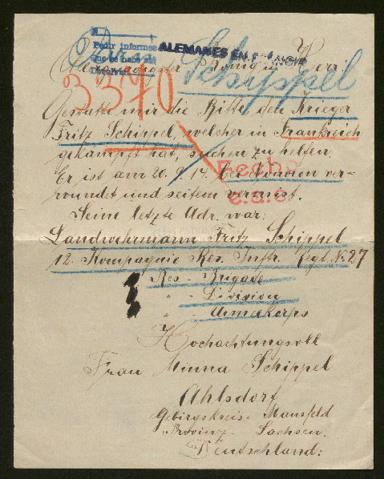 N.
Pedir informes
Que se hace en
ALEMANES EN
Schippel
3370
Gestatte mir die Bitte den Krieger
Fritz Schippel, welcher in Frankreich
gekämpft hat, suchen zu helfen.
Er ist am 20. 9. 14. bei
wundet und seitdem vermisst.
Seine letzte Adr. war.
Landwehrmann Fritz Schippel
12. Kompagnie Res. Inftr. Regt. No 27
Res. Brigade
" Division
" Armeekorps
Hochachtungsvoll
Frau Minna Schippel
Ahlsdorf
Gebirgskreis Mansfeld
Provinz Sachsen.
Deutschland: